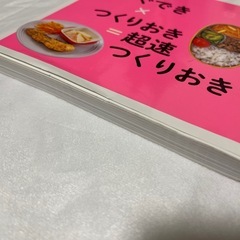 やでき
×
つくりおき
=
超速
つくりおき